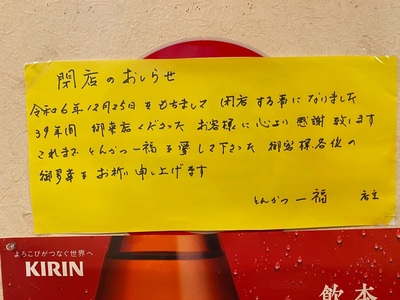 閉店のおしらせ
令和6年12月25日をもちまして 閉店する事になりました
39年間 御来店くださった お客様に心より感謝致します
これまで とんかつ一福を愛して下さった 御客様各位の
御多幸を お祈り申し上げます
とんかつ 一福 店主
よろこびがつなぐ世界へ
KIRIN
飲 本